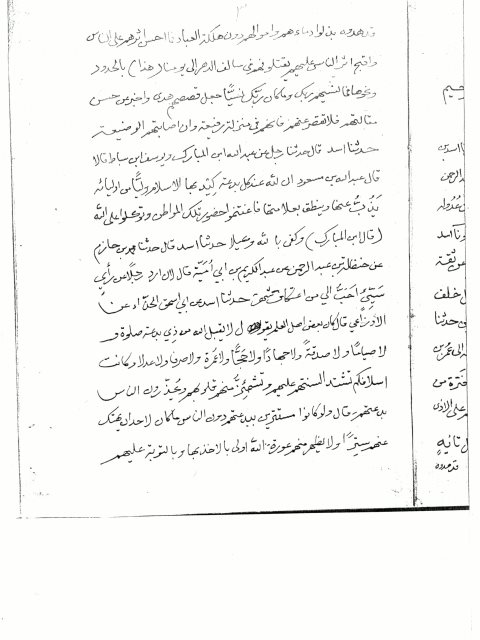 ٣
قد هدوه بذلوا دماءهم واموالهم دون هلكة العباد فما احسن اثرهم على الناس
واقبح اثر الناس عليهم يقتلونهم في سالف الدهر الى يومنا (هذا) بالحدود
ونحوها فما نسيهم ربك وما كان ربك نسيا جعل قصصهم هدى واخبر عن حسن
مقالتهم فلا تقصر عنهم فانهم في منزلة رفيعة وان اصابتهم الوضيعة
حدثنا اسد قال حدثنا رجل عن عبد الله ابن المبارك ويوسف ابن ساط قالا
قال عبد الله بن مسعود ان لله عند كل بدعة كيد بها الاسلام وليا من اوليائه
يذب عنها وينطق بعلامتها فاغتنموا حضور تلك المواطن وتوكلوا على الله
(قال ابن المبارك) وكفى بالله وكيلا حدثنا اسد قال حدثنا جرير بن حازم
عن حنظلة بن عبد الرحمن عن عبد الكريم بن ابي امية قال لان ارد رجلا عن رأي
سيئ احب الي من اعتكاف شهر حدثنا اسد عن ابي اسحق الحذاء عن
الاوزاعي قال كان بعض اهل العلم يقول لا يقبل الله من ذي بدعة صلوة و
لا صياما ولا صدقة ولا جهادا ولا حجا ولا عمرة ولا صرفا ولا عدلا وكانت
اسلافكم تشتد السنتهم عليهم وتشمئز منهم قلوبهم ويحذرون الناس
بدعتهم قال ولو كانوا مستترين ببدعتهم دون الناس ما كان لاحد ان يهتك
عنهم سترا ولا يظهر منهم عورة الله اولى بالاخذ بها وبالتوبة عليهم